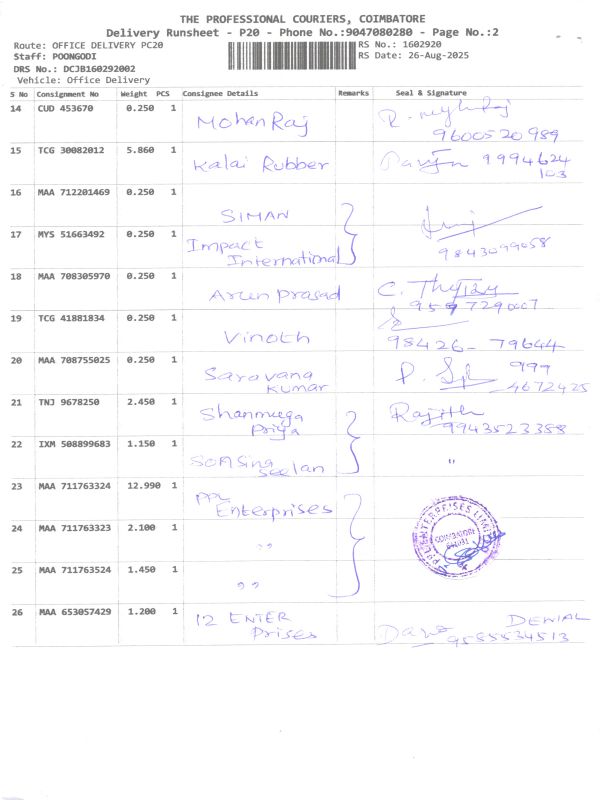 THE PROFESSIONAL COURIERS, COIMBATORE
Delivery Runsheet - P20 - Phone No.:9047080280 - Page No.:2
Route: OFFICE DELIVERY PC20 RS No.: 1602920
Staff: POONGODI RS Date: 26-Aug-2025
DRS No.: DCJB160292002
Vehicle: Office Delivery
S No Consignment No Weight PCS Consignee Details Remarks Seal & Signature
14 CUD 453670 0.250 1 Mohan Raj
9600520989
15 TCG 30082012 5.860 1 Kalai Rubber 9994624
103
16 MAA 712201469 0.250 1 SIMAN
17 MYS 51663492 0.250 1 Impact
International 9843099058
18 MAA 708305970 0.250 1 Arun prasad
19 TCG 41881834 0.250 1 Vinoth
98426- 79644
20 MAA 708755025 0.250 1 Saravana
Kumar 999
4672425
21 TNJ 9678250 2.450 1 Shanmuga
Priya
9943523358
22 IXM 508899683 1.150 1 "
23 MAA 711763324 12.990 1 PPL
Enterprises
24 MAA 711763323 2.100 1 "
25 MAA 711763524 1.450 1 "
26 MAA 653057429 1.200 1 12 ENTER
Prises DENIAL
9585534513